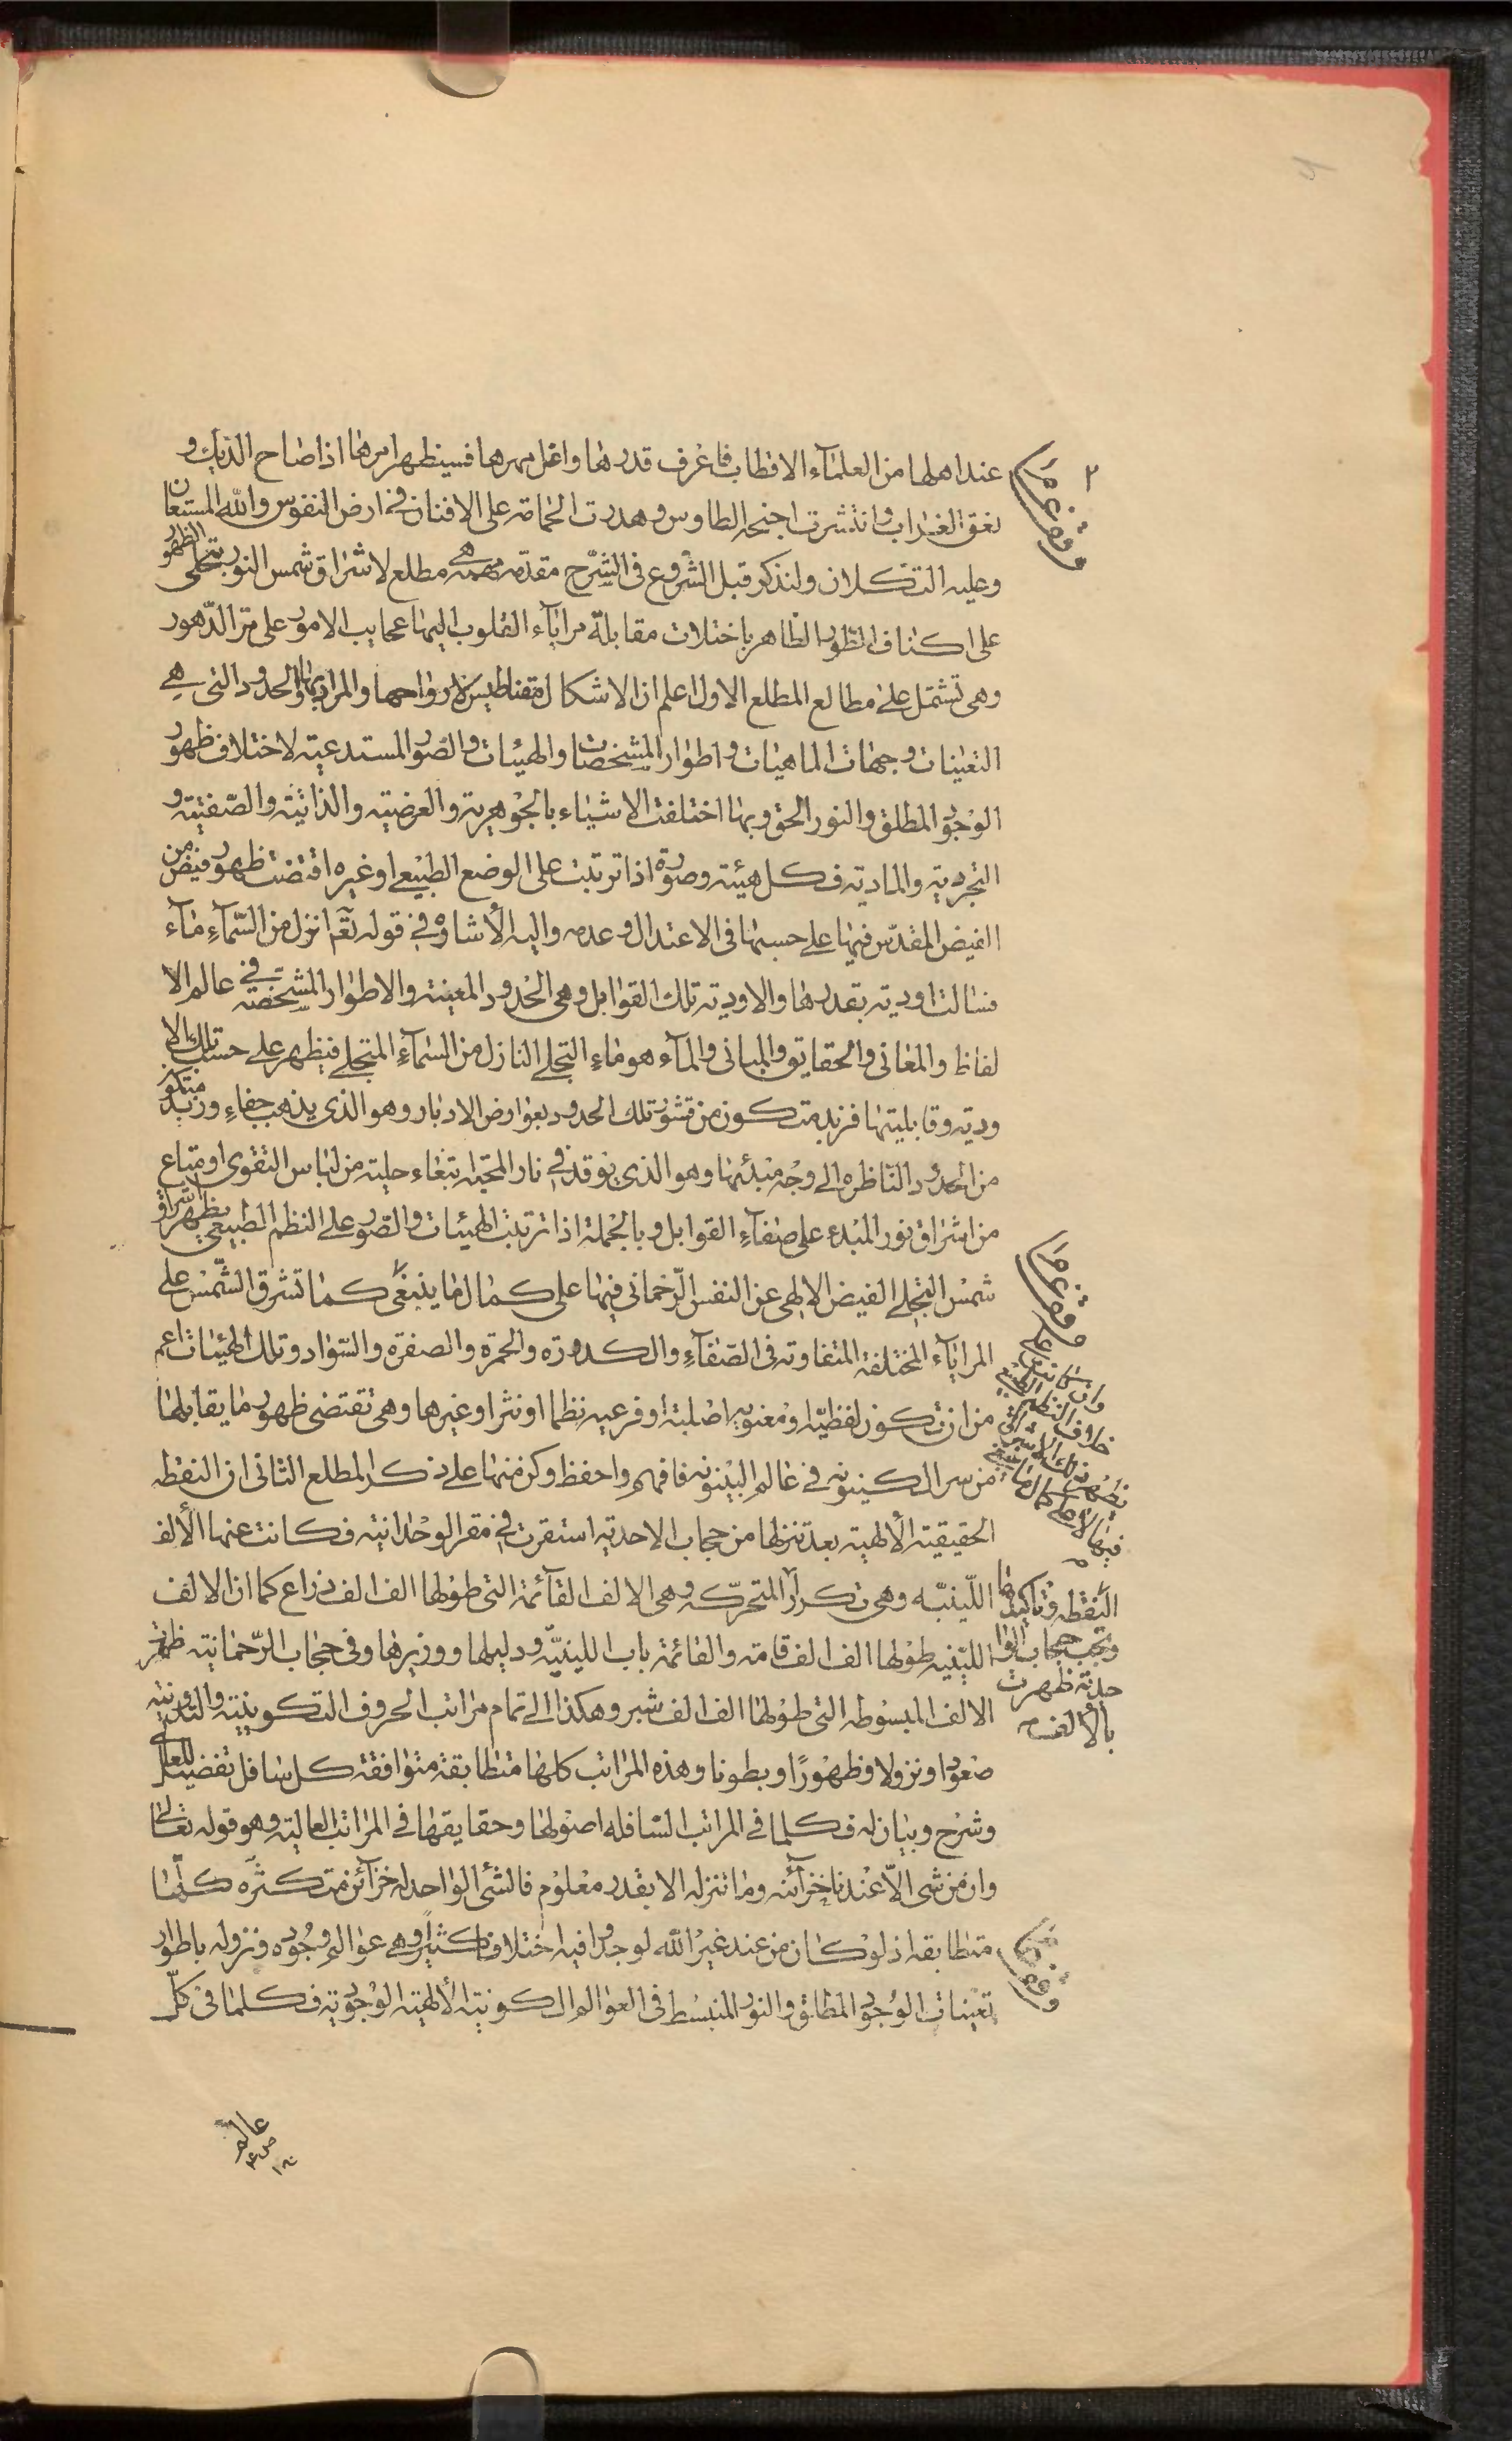 عند اهلها من العلمآء الاقطاب فاعرف قدرها واغل مهرها فسيظهر امرها اذا صاح الديك و
نعق الغراب وانتشرت اجنحه الطاوس وهدرت الحمامة على الافنان في ارض النفوس والله المستعان
وعليه التكلان ولنذكر قبل الشروع فى الشرح مقدّمه مهمه هى مطلع لاشراق شمس النور بتجلى الظهور
على اكناف الطور الظاهر باختلاف مقابلة مرايآء القلوب اليها عجايب الامور على مرّ الدّهور
وهى تشتمل على مطالع المطلع الاول اعلم ان الاشكال مقناطيس لارواحها والمراد بها الحدود التى هى
التعينات وجهات الماهيات واطوار المشخصات والهيئات والصور المستدعية لاختلاف ظهور
الوجود المطلق والنور الحق وبها اختلفت الاشياء بالجوهرية والعرضية والذاتية والصّفتية و
التجردية والمادية فكل هيئة وصورة اذا ترتبت على الوضع الطبيعى او غيره اقتضت ظهور فيض من
الفيض المقدّس فيها على حسبها فى الاعتدال وعدمه واليه الأشاره في قوله تعّم انزل من السّمآءِ مآء
فسالت اودية بقدرها والاودية تلك القوابل وهى الحدود المعينة والاطوار المشخصّة في عالم الا
لفاظ والمعانى والحقايق والمبانى والمآء هو ماء التجلى النازل من السمآءِ المتجلى فيظهر على حسب تلك الا
ودية وقابليتها فزبد متكون من قشور تلك الحدود بعوارض الادبار وهو الذى يذهب جفاء وزبد متكون
من الحدود النّاظره الى وجه مبدئها وهو الذى يوقد في نار المحبّه ابتغاء حلية من لباس التقوى او متاع
من اشراق نور المبدء على صفآءِ القوابل وبالجملة اذا ترتبت الهيئات والصّور على النظم الطبيعى يظهر اشراق
شمس التجلى الفيض الالهى عن النفس الرّحمانى فيها على كمال ما ينبغى كما تشرق الشّمس على
المرايآء المختلفة المتفاوته فى الصّفآءِ والكدورة والحمرة والصفرة والسّواد وتلك الهيئات اعم
من ان تكون لفظيّه او معنويه اصلية او فرعيه نظما او نثرا وغيرها وهى تقتضى ظهور ما يقابلها
من سر الكينونه في عالم البينونه فافهم واحفظ وكن منها على ذكر المطلع الثانى ان النقطه
الحقيقية الألهية بعد تنزلها من حجاب الاحدية استقرت في مقر الوحدانيه فكانت عنها الألف
اللّينيّه وهى تكرار المتحرّكه وهى الالف القآئمة التى طولها الف الف ذراع كما ان الالف
الليّنيه طولها الف الف قامة والقائمة باب اللينيّه ودليلها ووزيرها وفى حجاب الرّحمانية ظهر
الالف المبسوطه التى طولها الف الف شبر وهكذا الى تمام مراتب الحروف التكوينية والتدوينية
صعودا ونزولا وظهورًا وبطونا وهذه المراتب كلها متطابقة متوافقة كل سافل تفصيل للعالى
وشرح وبيان له فكلما فى المراتب السّافله اصولها وحقايقها في المراتب العالية وهو قوله تعالى
وان من شى الاّ عندنا خزآئنه وما ننزله الا بقدر معلوم فالشئ الواحد له خزآئن متكثّره كلّها
متطابقه اذ لو كان من عند غير الله لوجدوا فيه اختلافا كثيرا وهى عوالم وجوده ونزوله باطوار
تعينات الوجود المطلق والنور المنبسط فى العوالم الكونية الألهية الوجودية فكلما فى كلّ
٢
وقف عام
وقف عام
النقطه وتاكيدها
وتحت حجاب الوا
حدية ظهرت
بالألف
عالم
ص ع